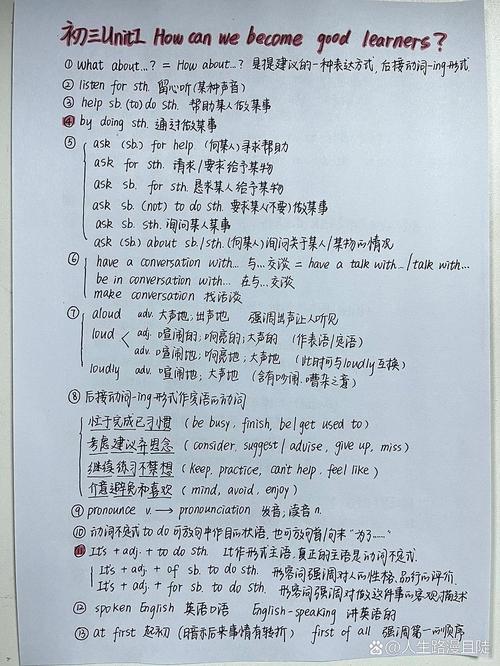 初三Unit1 How can we become good learners?
① what about...? = How about...? 是提建议的一种表达方式,后接动词-ing形式
② listen for sth. 留心听(某种声音)
③ help sb.(to)do sth. 帮助某人做某事
④ by doing sth. 通过做某事
⑤ ask (sb.) for help (向某人)寻求帮助
ask for sth. 请求/要求给予某物
ask sb. for sth. 恳求某人给予某物
ask sb. (not) to do sth. 要求某人(不要)做某事
ask sb. sth. 询问某人某事
ask (sb.) about sb./sth.(向某人)询问关于某人/某物的情况
⑥ have a conversation with... 与...交谈 = have a talk with.../talk with...
be in conversation with... 在与...交谈
make conversation 找话谈
⑦ aloud adv. 大声地;出声地 强调出声让人听见
loud adj. 喧闹的;响亮的;大声的 (作表语/定语)
adv. 喧闹地;响亮地;大声地 (此时可与loudly互换)
loudly adv. 喧闹地;大声地 (含有吵闹、嘈杂之意)
⑧ 后接动词-ing形式作宾语的动词
忙于完成已习惯 (be busy, finish, be/get used to)
考虑建议弃思念 (consider, suggest/advise, give up, miss)
继续练习不禁想 (keep, practice, can't help, feel like)
介意避免和喜欢 (mind, avoid, enjoy)
⑨ pronounce v. → pronounciation 发音;读音 n.
⑩ 动词不定式 to do 可放句中作目的状语,也可放句首/句末"为了......"
⑪ It's + adj. + to do sth. It作形式主语,真正的主语是动词不定式.
It's + adj. + of sb. to do sth. 形容词强调对人的性格、品行的评价.
It's + adj. + for sb. to do sth. 形容词强调对做这件事的客观描述
⑫ spoken English 英语口语 English-speaking 讲英语的
⑬ at first 起初 (暗示后来事情有转折) first of all 强调第一的顺序
@人生路漫且陡